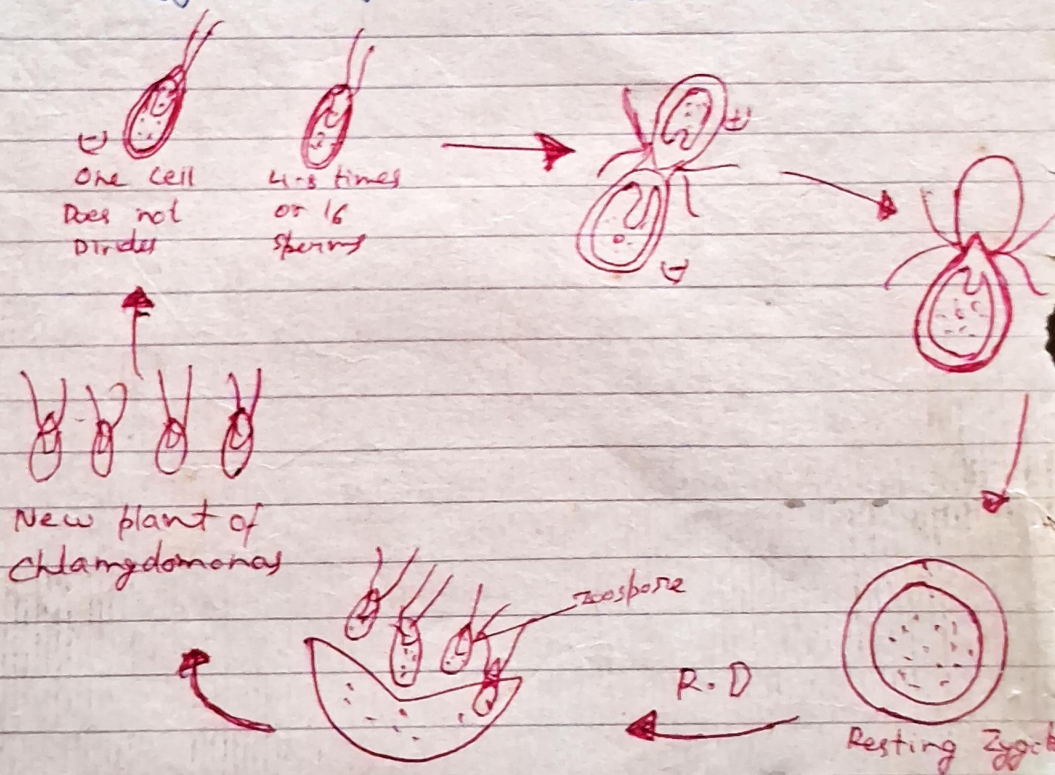 One Cell
Does not
Divides
4-8 times
or 16
Sperms
New plant of
Chlamydomonas
zoospore
R.D
Resting Zygot